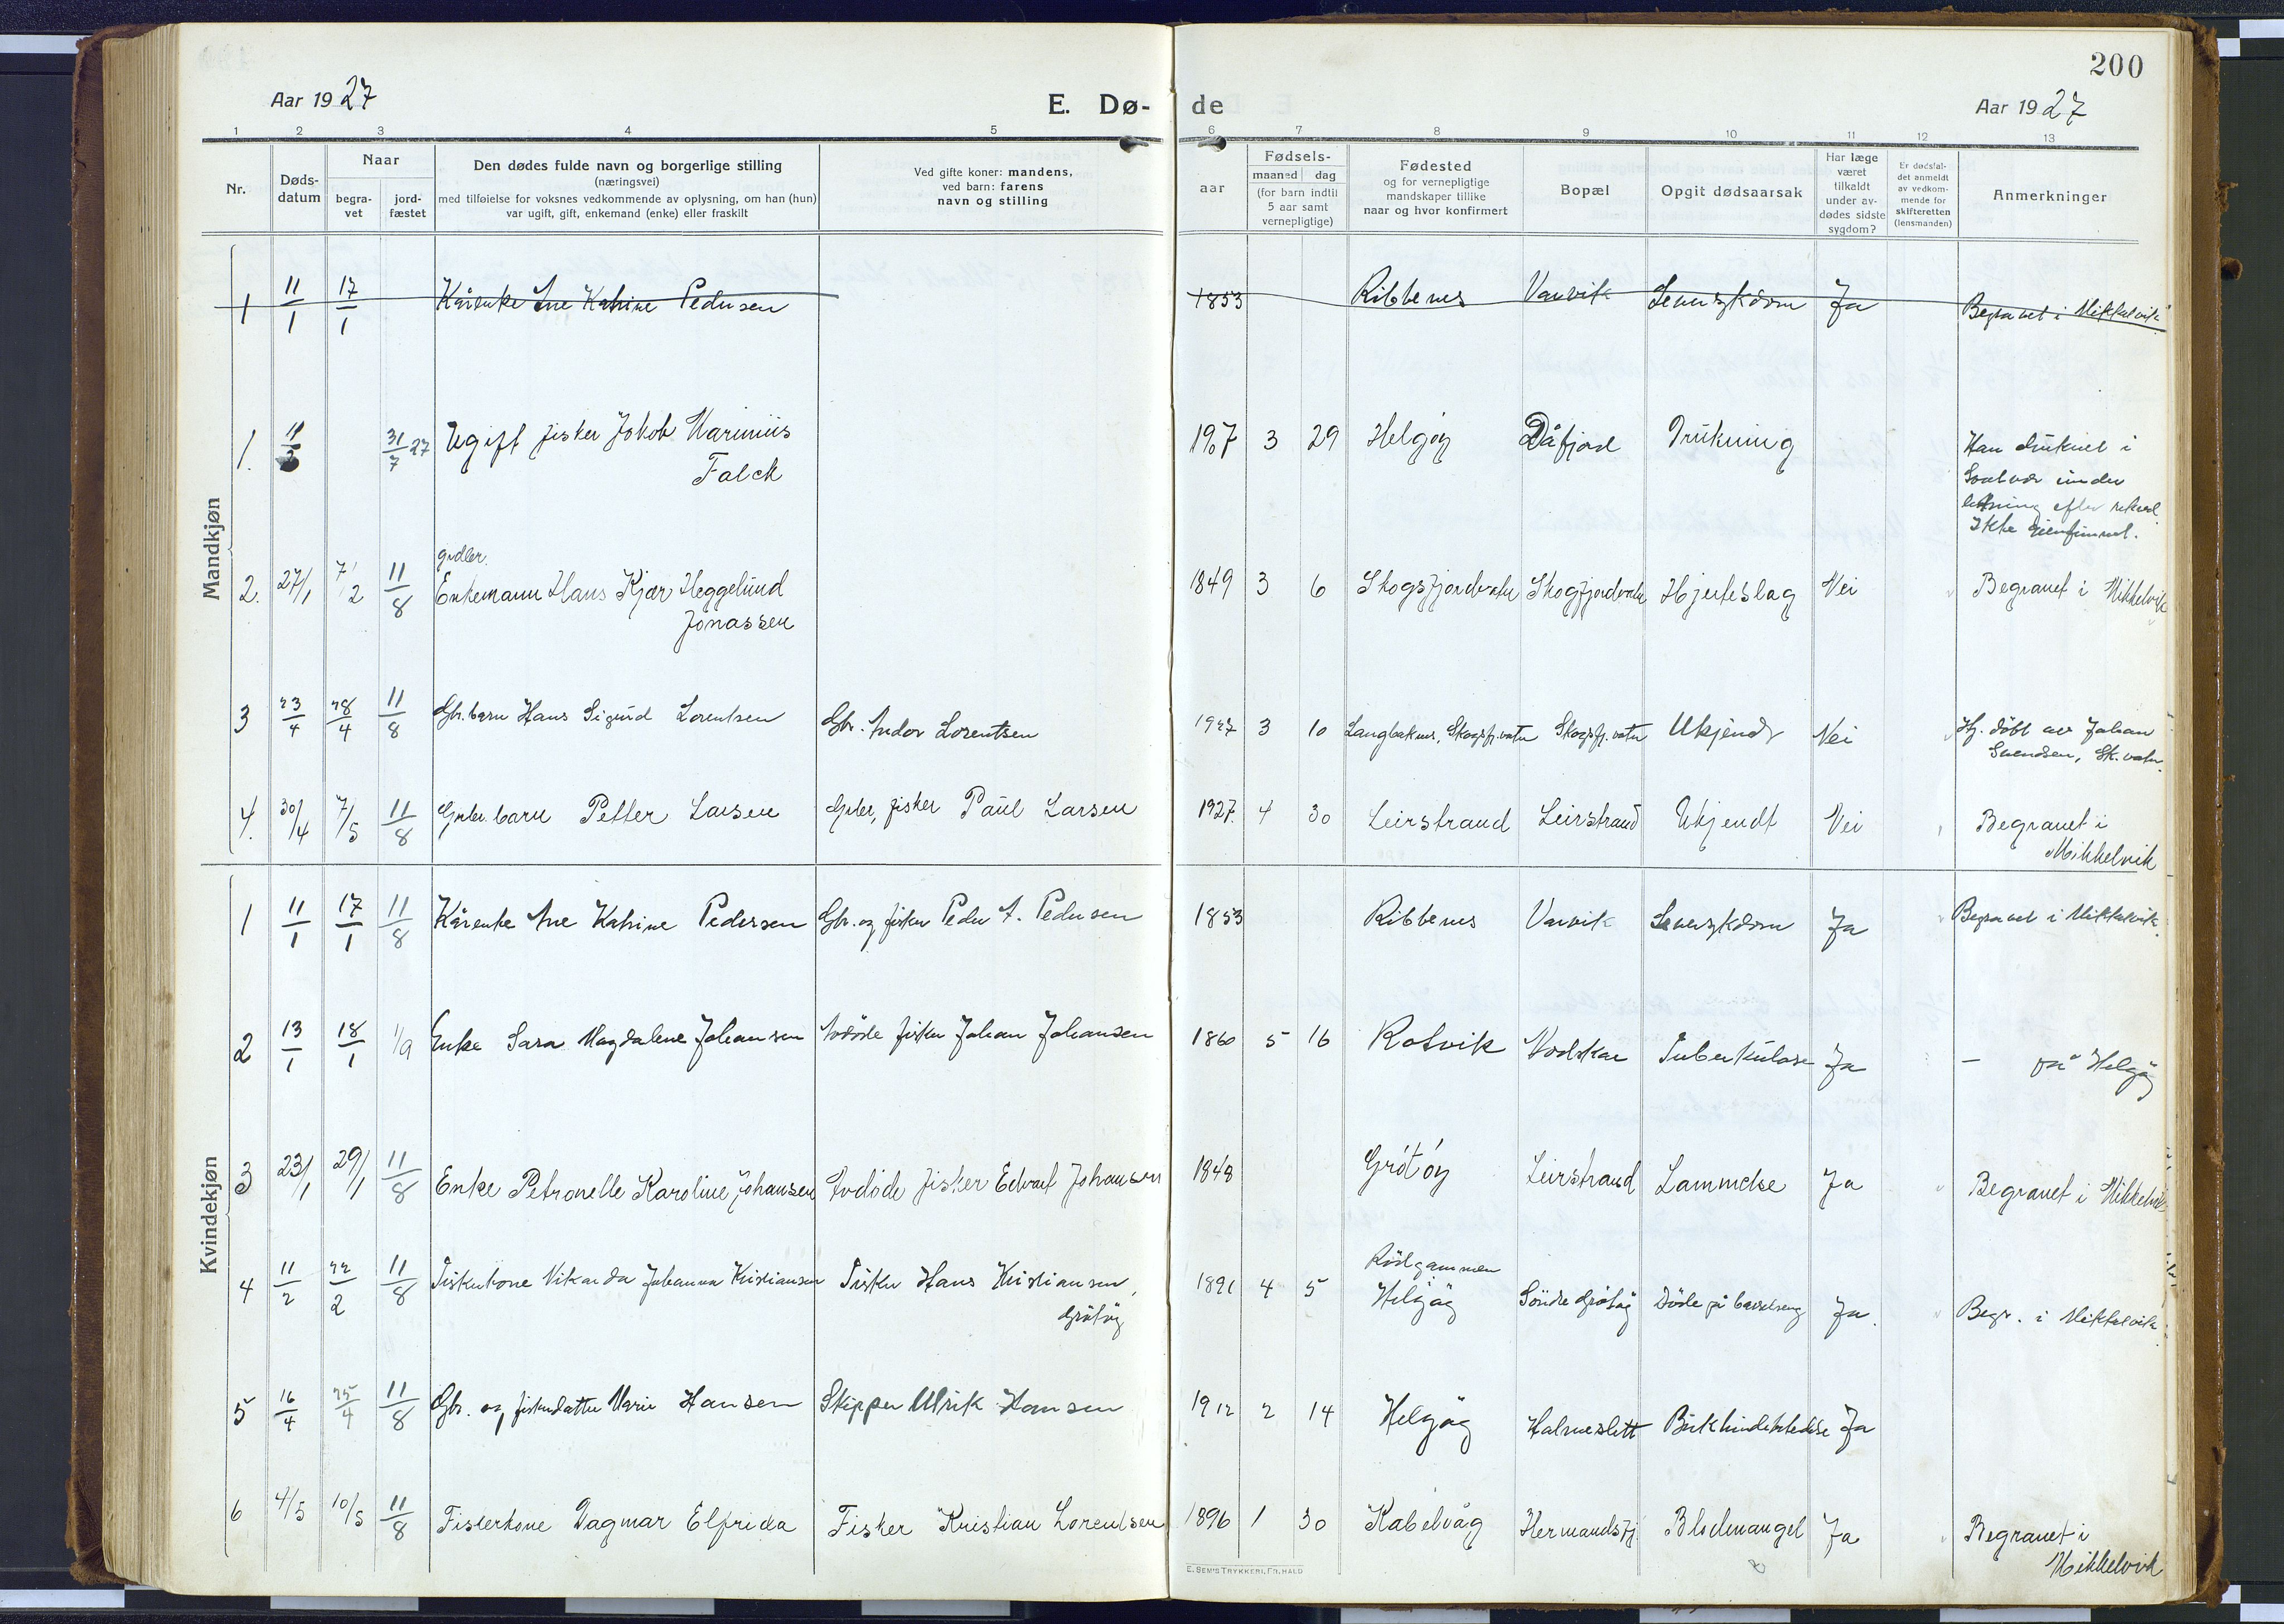 200
Aar 1927
E. Dø-
de
Aar 1927
1 2 3 4 5 6 7 8 9 10 11 12 13
Nr.
Døds-
datum
Naar
begra-
vet
jord-
fæstet
Den dødes fulde navn og borgerlige stilling
(næringsvei)
med tilføielse for voksnes vedkommende av oplysning, om han (hun)
var ugift, gift, enkemand (enke) eller fraskilt
Ved gifte koner: mandens,
ved barn: farens
navn og stilling
aar
Fødsels-
maaned dag
(for barn indtil
5 aar samt
vernepligtige)
Fødested
og for vernepligtige
mandskaper tillike
naar og hvor konfirmert
Bopæl
Opgit dødsaarsak
Har læge
været
tilkaldt
under av-
dødes sidste
sygdom?
Er dødsfal-
det anmeldt
av vedkom-
mende for
skifteretten
(lensmanden)
Anmerkninger
Mandkjøn
1 11/1 17/1 Kårenke Ane Katrine Pedersen 1853 Ribbenes Vanvik Leversykdom Ja Begravet i Mikkelvik
1. 11/3 31/7 27 Ugift fisker Jokob Marinius
Falck
1907 3 29 Helgøy Dåfjord Drukning
Han druknet i
under
efter
Ikke gjenfunnet.
2. 27/1 7/2 11/8 grdbr.
Enkemann Hans Kjær Heggelund
Jonassen
1849 3 6 Skogsfjordvatn Skogfjordvatn Hjerteslag Nei Begravet i Mikkelvik
3 23/4 28/4 11/8 Gbr. barn Hans Sigurd Lorentsen Gbr. Andor Lorentsen 1927 3 10 Langbakken, Skogsfj. vatn Skogsfj. vatn Ukjendt Nei
Hj. døbt av Johan
Svendsen, Sk. vatn.
4. 30/4 7/5 11/8 Grbr. barn Petter Larsen Grbr, fisker Paul Larsen 1927. 4 30 Leirstrand Leirstrand Ukjendt Nei Begravet i
Mikkelvik
Kvindekjøn
1 11/1 17/1 11/8 Kårenke Ane Katrine Pedersen Gbr. og fisker Peder A. Pedersen 1853 Ribbenes Vanvik Leversykdom Ja Begravet i Mikkelvik.
2 13/1 18/1 1/9 Enke Sara Magdalene Johansen Avdøde fisker Johan Johansen 1860 5 16 Rotvik Nordskar Tuberkulose Ja — på Helgøy
3 23/1 29/1 11/8 Enke Petronelle Karoline Johansen Avdøde fisker Edvart Johansen 1848 Grötöy Leirstrand Lammelse Ja Begravet i Mikkelvik
4 11/2 22/2 11/8 Fiskerkone Vikanda Johanna Kristiansen Fisker Hans Kristiansen,
Grötöy
1891 4 5 Rödgammen
Helgöy Söndre Grötöy Döde på barselseng Ja. Begr. i Mikkelvik.
5 16/4 25/4 11/8 Gbr. og fiskerdatter Marie Hansen Skipper Ulrik Hansen 1912 2 14 Helgöy Halmeslett Bukhindebetedelse Ja
6 4/5 10/5 11/8 Fiskerkone Dagmar Elfrida Fisker Kristian Lorentsen 1896 1 30 Kabelvåg Hermandsfj. Blodmangel Ja Begravet i
Mikkelvik
E. SEM'S TRYKKERI, FR. HALD